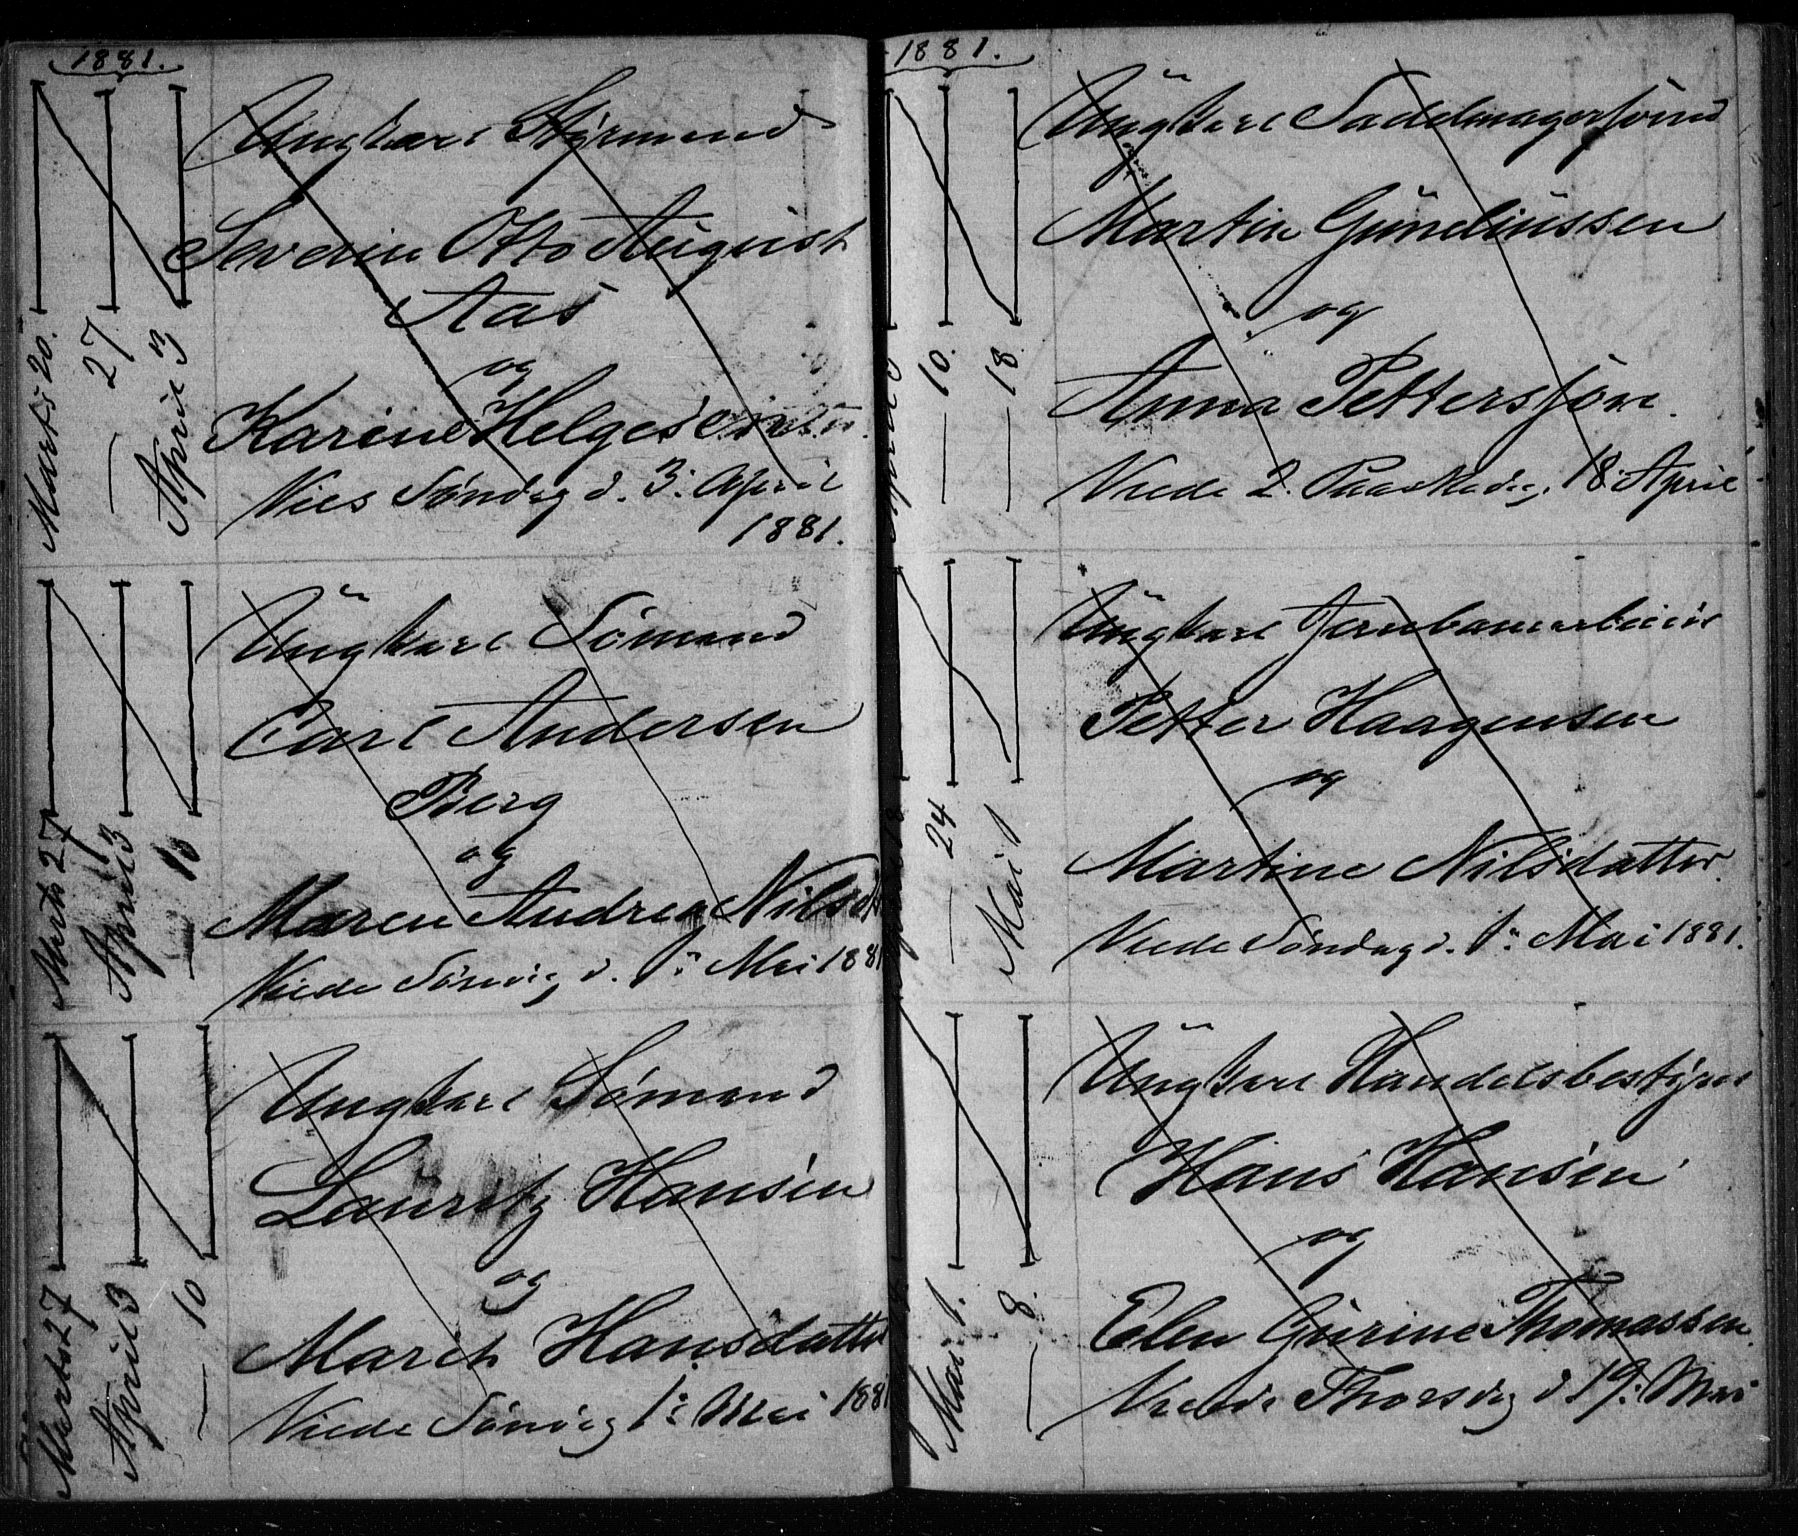 1881.
Marts 20.
— 27.
April 3
Ungkarl Styrmand
Severin Otto August
Aas
og
Karine Helgesen
Vies Søndag d. 3. April
1881.
Marts 27
April 3
— 10
Ungkarl Sømand
Carl Andersen
Berg
og
Maren Andrea Nilsd
Viede Søndag d. 1: Mai 1881
Marts 27
April 3
— 10
Ungkarl Sømand
Lauritz Hansen
og
Marit Hansdatter
Viede Søndag 1: Mai 1881
1881.
— 10.
— 18.
Ungkarl Sadelmagersvend
Martin Gundiussen
og
Anna Petterssøn.
Viede 2. Paaskedag, 18. April
— 24
Mai 1
Ungkarl Jernbanearbeider
Petter Haagensen
og
Martine Nilsdatter.
Viede Søndag d. 1: Mai 1881.
Mai 1.
— 8.
Ungkarl Handelsbestyrer
Hans Hansen
og
Elen Gurine Thomassen.
Viede Thorsdag d 19: Mai